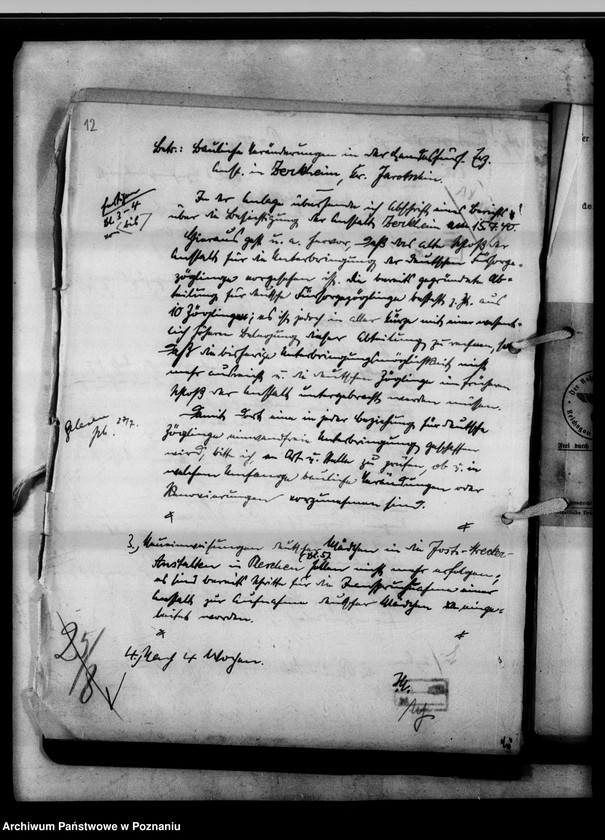 12
Betr.: Bauliche Veränderungen in der Landesfürs. Erz.
Anst. in Zerkheim, Kr. Jarotschin.
In der Anlage übersende ich Abschrift eines Berichts
über die Besichtigung der Anstalt Zerkheim am 15.7.40.
Hieraus geht u. a. hervor, daß das alte Schloß der
Anstalt für die Unterbringung der deutschen Fürsorge-
zöglinge vorgesehen ist. Die bereits gegründete Ab-
teilung für deutsche Fürsorgezöglinge besteht z. Zt. aus
10 Zöglingen; es ist jedoch in aller Kürze mit einer wesent-
lich höheren Belegung dieser Abteilung zu rechnen, so
daß die bisherige Unterbringungsmöglichkeit nicht
mehr ausreicht u. die deutschen Zöglinge im früheren
Schloß der Anstalt untergebracht werden müssen.
Damit dort eine in jeder Beziehung für deutsche
Zöglinge einwandfreie Unterbringung geschaffen
wird, bitte ich, an Ort u. Stelle zu prüfen, ob u. in
welchem Umfange bauliche Veränderungen oder
Renovierungen vorzunehmen sind.
Gelesen 27/7.
3., Neueinweisungen deutscher Mädchen in die
Anstalten in sollen nicht mehr erfolgen;
es sind bereits Schritte für die Inanspruchnahme einer
Anstalt zur Aufnahme deutscher Mädchen
worden.
4., Nach 4 Wochen.
25/8
Archiwum Państwowe w Poznaniu